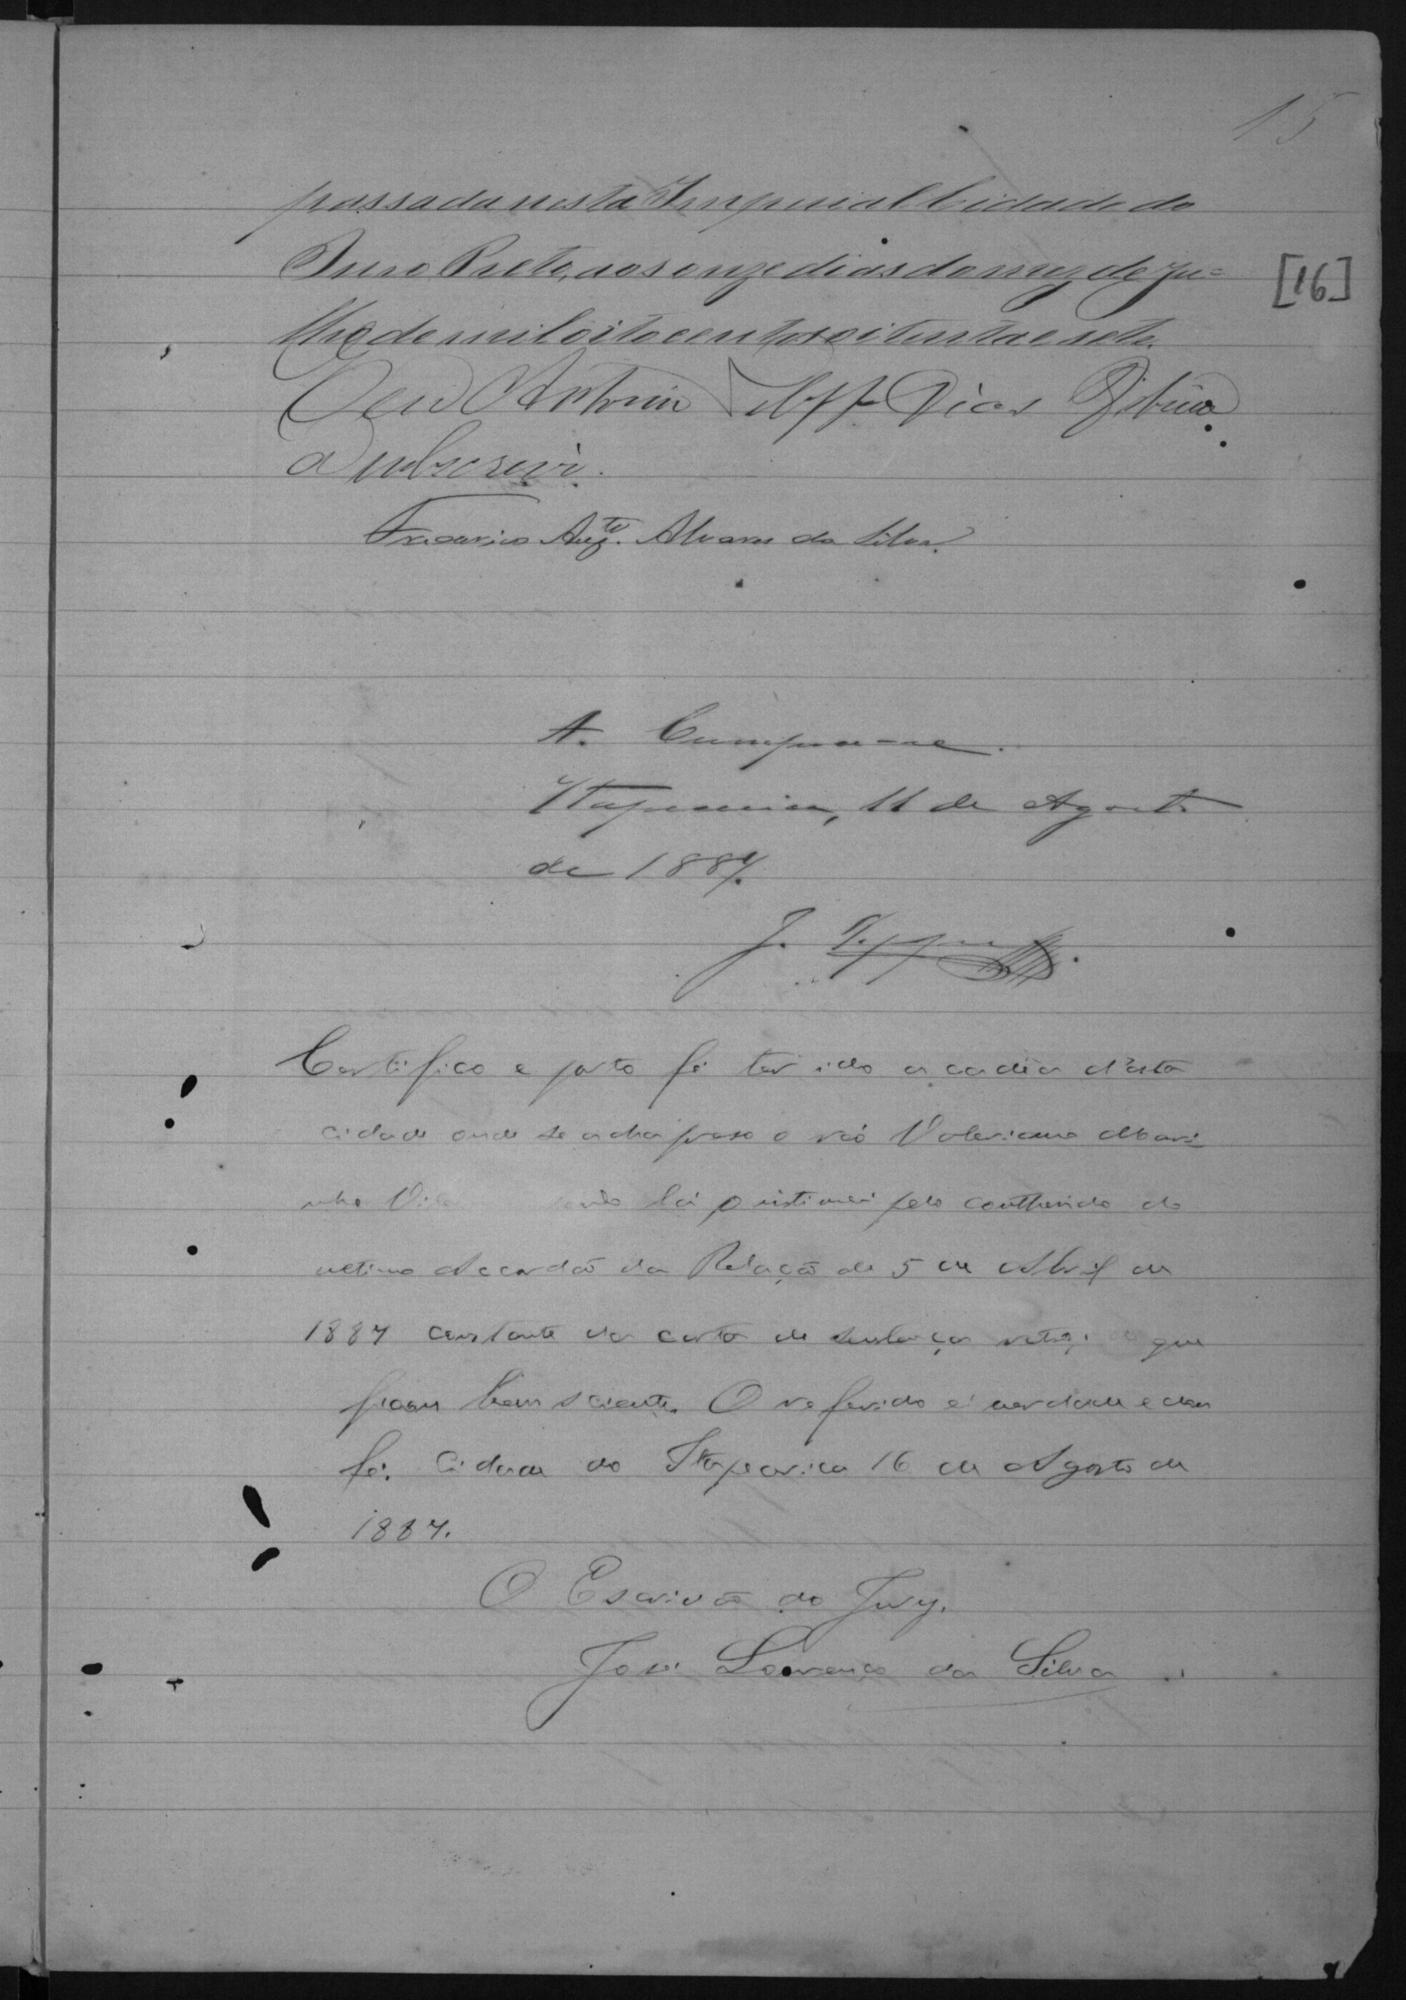 15
passada nesta Imperial Cidade do
Ouro Preto, aos onze dias do mez de Ju=
[16]
lho de mil oitocentos oitenta e sete.
Eu Antonio Dias
o subscrevi.
Frederico Augto. Alvares da Silva.
A. Cumpra-se.
Itapecerica, 11 de Agosto
de 1887.
J.
Certifico e porto fé ter ido a cadêa d'esta
cidade onde se acha preso o réo Valeriano Mari
nho sendo lá o intimei pelo conthendo do
ultimo Accordão da Relação de 5 de Abril de
1887 constante da carta de sentença retro; que
ficou bem sciente. O referido é verdade e dou
fé. Cidade do Itapecerica 16 de Agosto de
1887.
O Escrivão do Jury.
José Lourenço da Silva